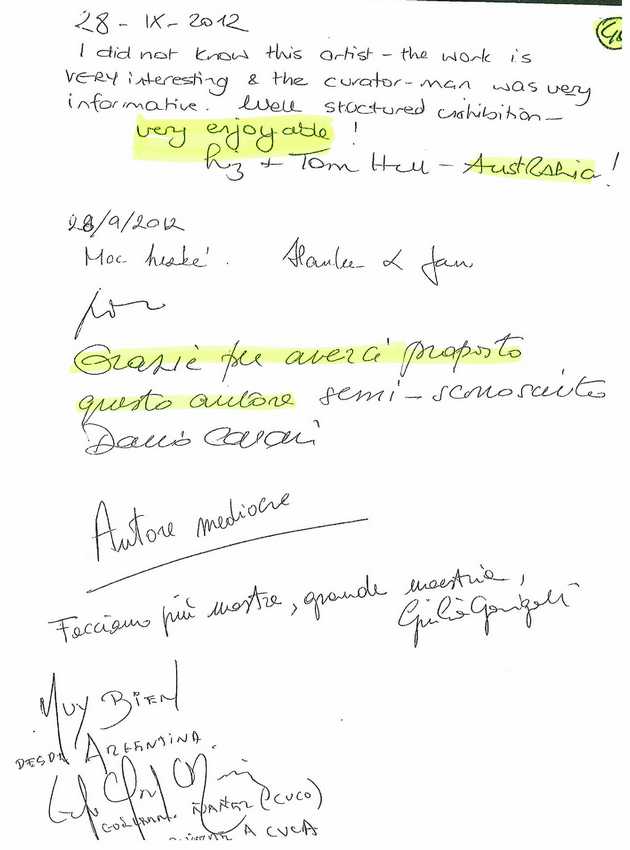 28-IX-2012
I did not know this artist - the work is
VERY interesting & the curator-man was very
informative. Well structured exhibition -
very enjoyable !
Liz + Tom Hull - Australia!
28/9/2012
Moc hezké. & Jan
Grazie per averci proposto
questo autore semi-sconosciuto
Dario
Autore mediocre
Facciamo più mostre, grande maestria,
Giulia
MUY BIEN
DESDE ARGENTINA.
(CUCO)
A CUCA